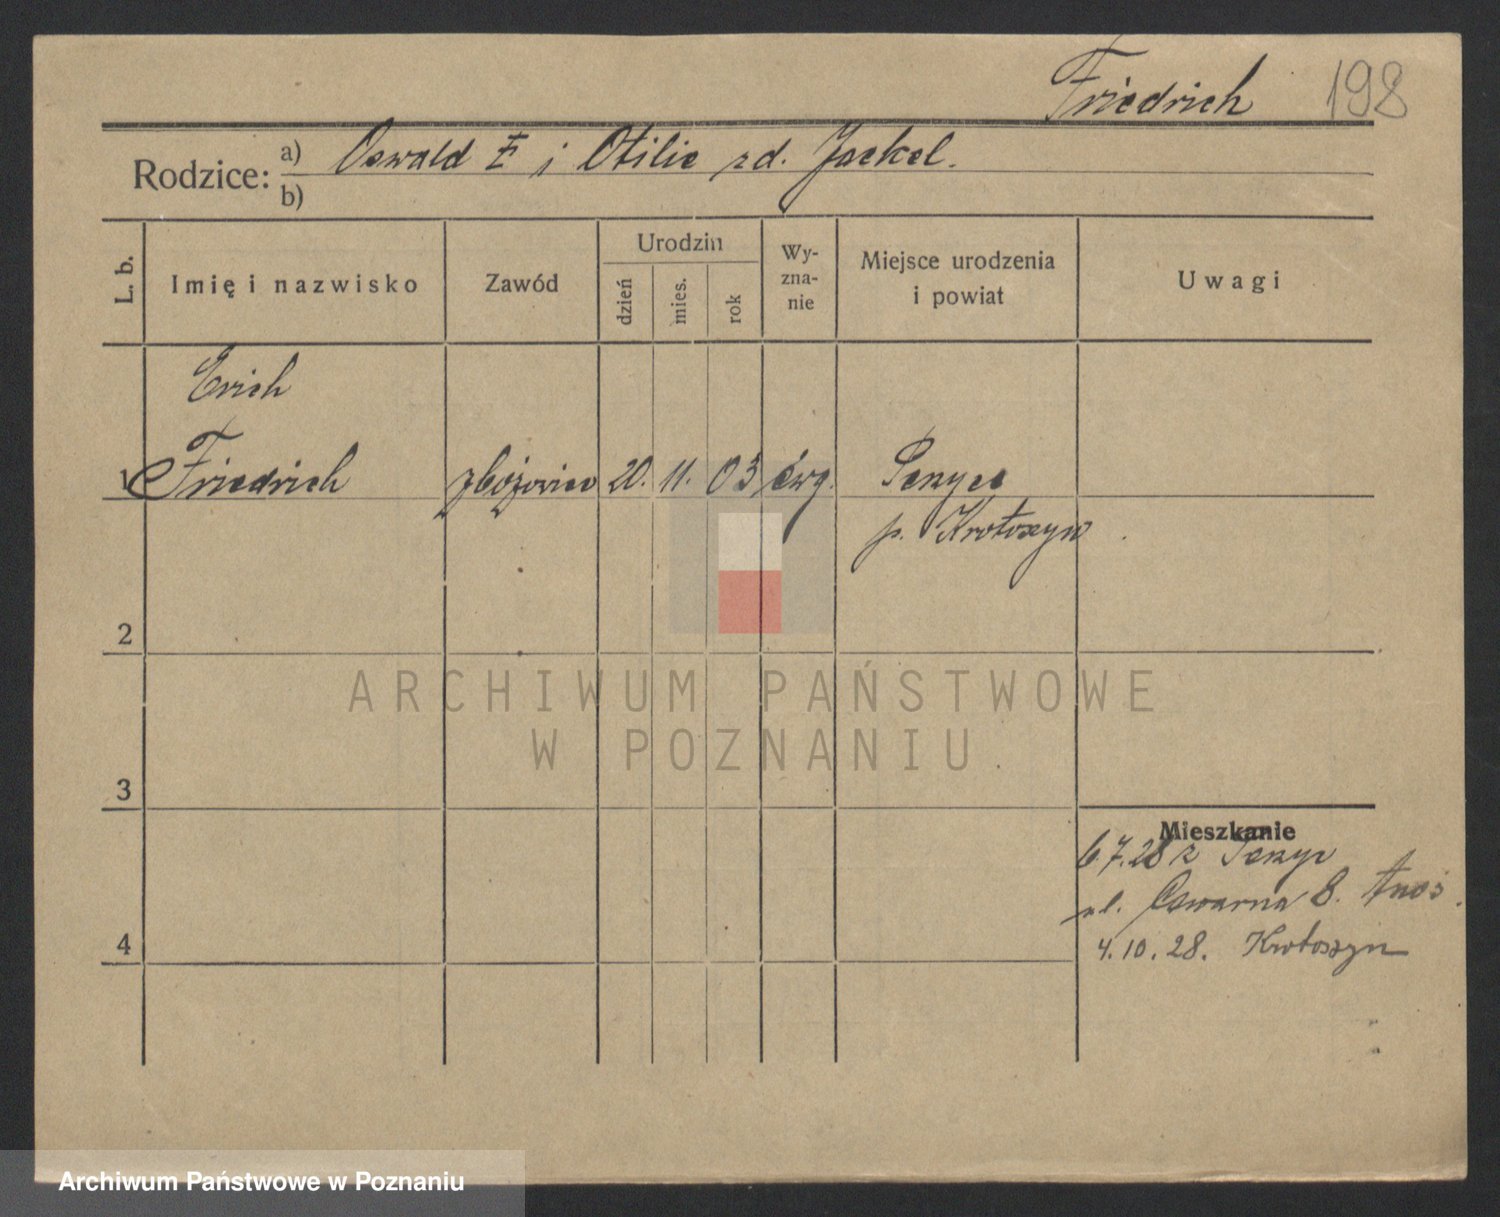 Friedrich 198
Rodzice: a) Oswald F i Otilie zd. Jaekel.
b)
L. b. Imię i nazwisko Zawód Urodzin dzień mies. rok Wy-zna-nie Miejsce urodzenia i powiat Uwagi
Erich
1 Friedrich zbożowiec 20. 11. 03 ewg.
p. Krotoszyn
2
ARCHIWUM PAŃSTWOWE
W POZNANIU
3
Mieszkanie
6.7.28 z
ul. 8.
4.10.28. Krotoszyn
4
Archiwum Państwowe w Poznaniu